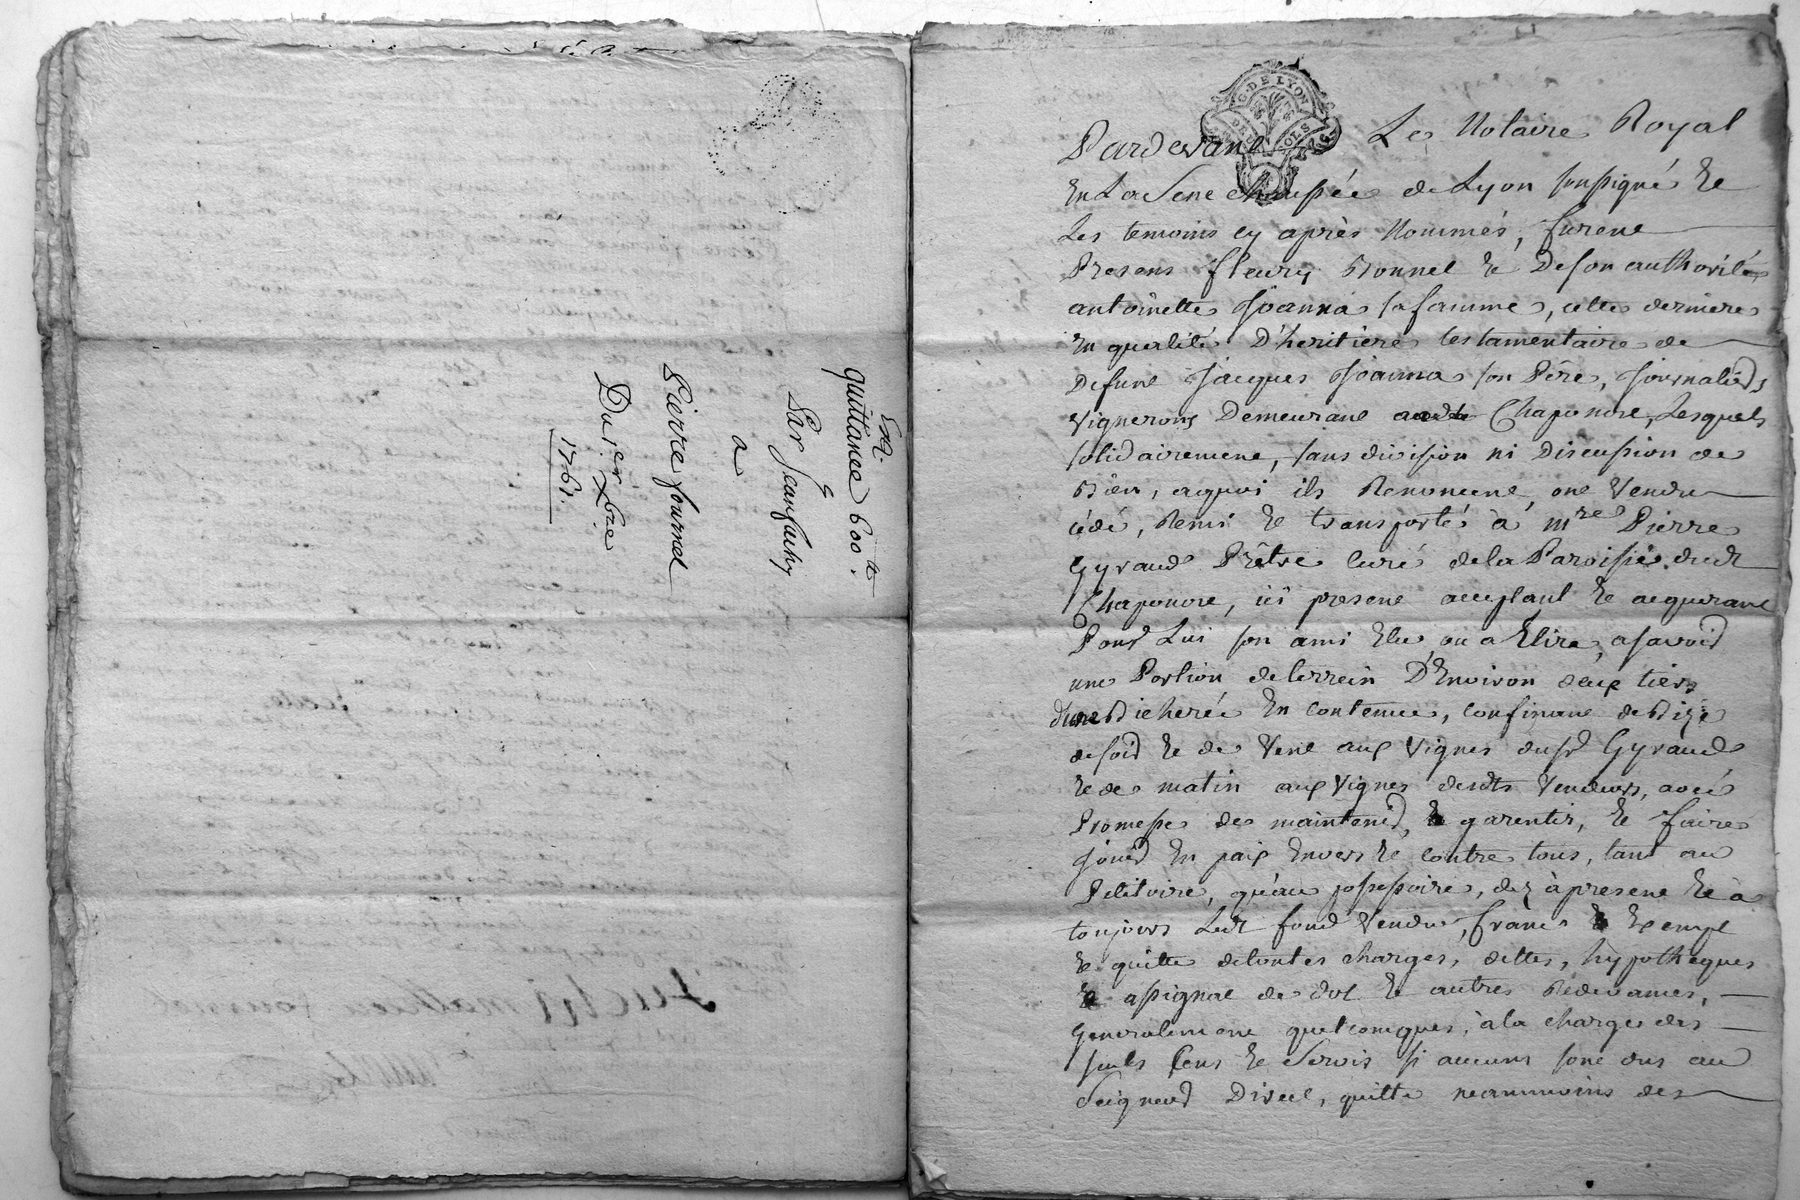 Ext.
quittance 600ᵗᵗ.
Par Jean fuchy
a
Pierre fournel
Du 1er Xbre
1761
G. DE LYON
Pardevant Le Notaire Royal
En La Senechaussée de Lyon soussigné Et
Les temoins cy après Nommés, furent
Presens fleury Bonnel Et De son authorité
antoinette Joanna sa famme, cette derniere
En qualité D'heritiere testamentaire de
Defunt Jacques Joanna son Père, Journaliers
Vignerons Demeurant audit Chaponore, Lesquels
solidairement, sans division ni Discussion de
Bien, aquoi ils Renoncent, ont Vendu
cédé, Remis Et transporté à mre Pierre
Gyraud Prêtre Curé de la Paroisse dudt
Chaponore, ici present acceptant Et aquerant
Pour Lui son ami Elu ou a Elire, asavoir
une Portion de terrein D'Environ deux tiers
d'une Bicherée En contenue, confinant de Bize
de soir Et de Vent aux Vignes dusr Gyraud
Et de matin aux Vignes desdts Vendeurs, avec
Promesse de maintenir, Et garentir, Et faire
Jouir En paix Envers Et contre tous, tant au
Petitoire, qu'au possessoire, dez àpresent Et à
toujours Ledt fond Vendu, franc Et Exempt
Et quitte detoutes charges, dettes, hypotheques
Et assignat de dot Et autres Redevances,
Generalement quelconques, àla charge des
seuls Cens Et Servis si aucuns sont dus au
Seigneur Direct, quitte neanmoins des